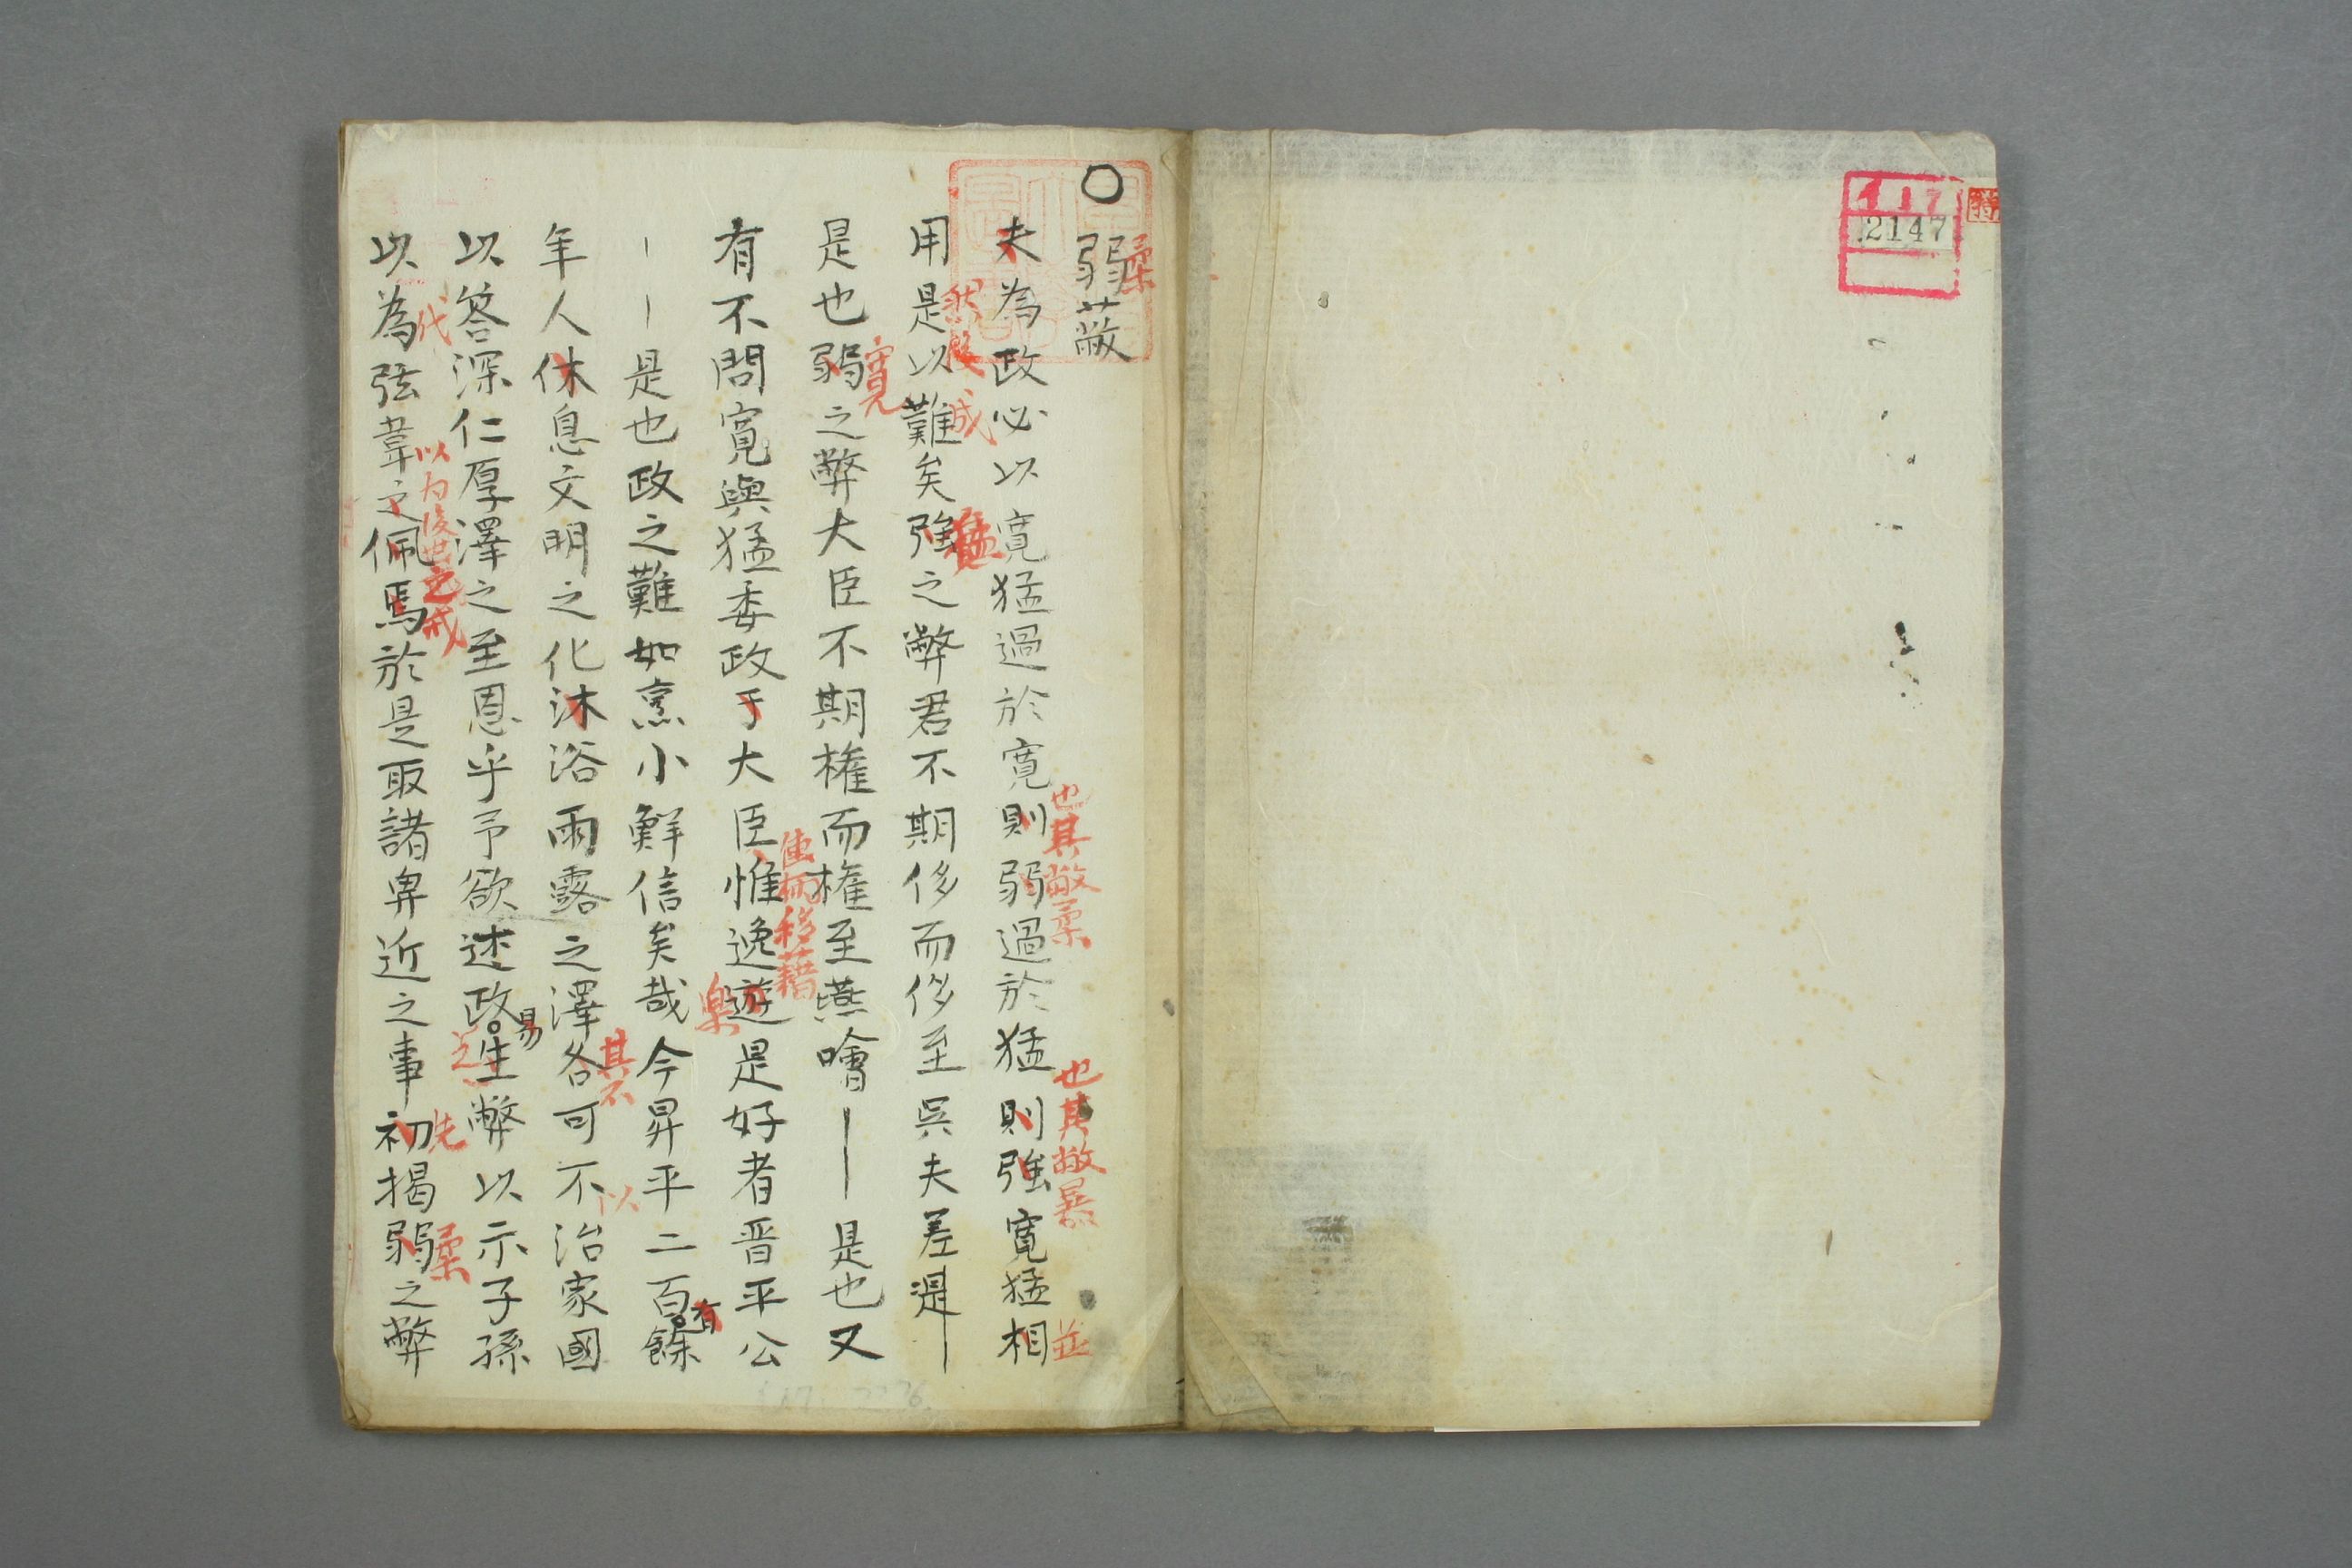 117
2147
○
弱蔽
柔
夫為政必以寛猛過於寛則弱過於猛則強寛猛相
也其敝柔
也其敝暴
並
用是以難矣強之弊君不期侈而侈至呉夫差是
猛
是也弱之弊大臣不期権而権至燕噲——是也又
寛
有不問寛與猛委政于大臣惟逸遊是好者晋平公
移藉
楽
——是也政之難如烹小鮮信矣哉今昇平二百餘
有
年人休息文明之化沐浴雨露之澤各可不治家國
其不
以
以答深仁厚澤之至恩乎予欲述政生弊以示子孫
易
之
以為弦韋之佩焉於是取諸卑近之事初掲弱之弊
代
以为後世之戒
先
柔